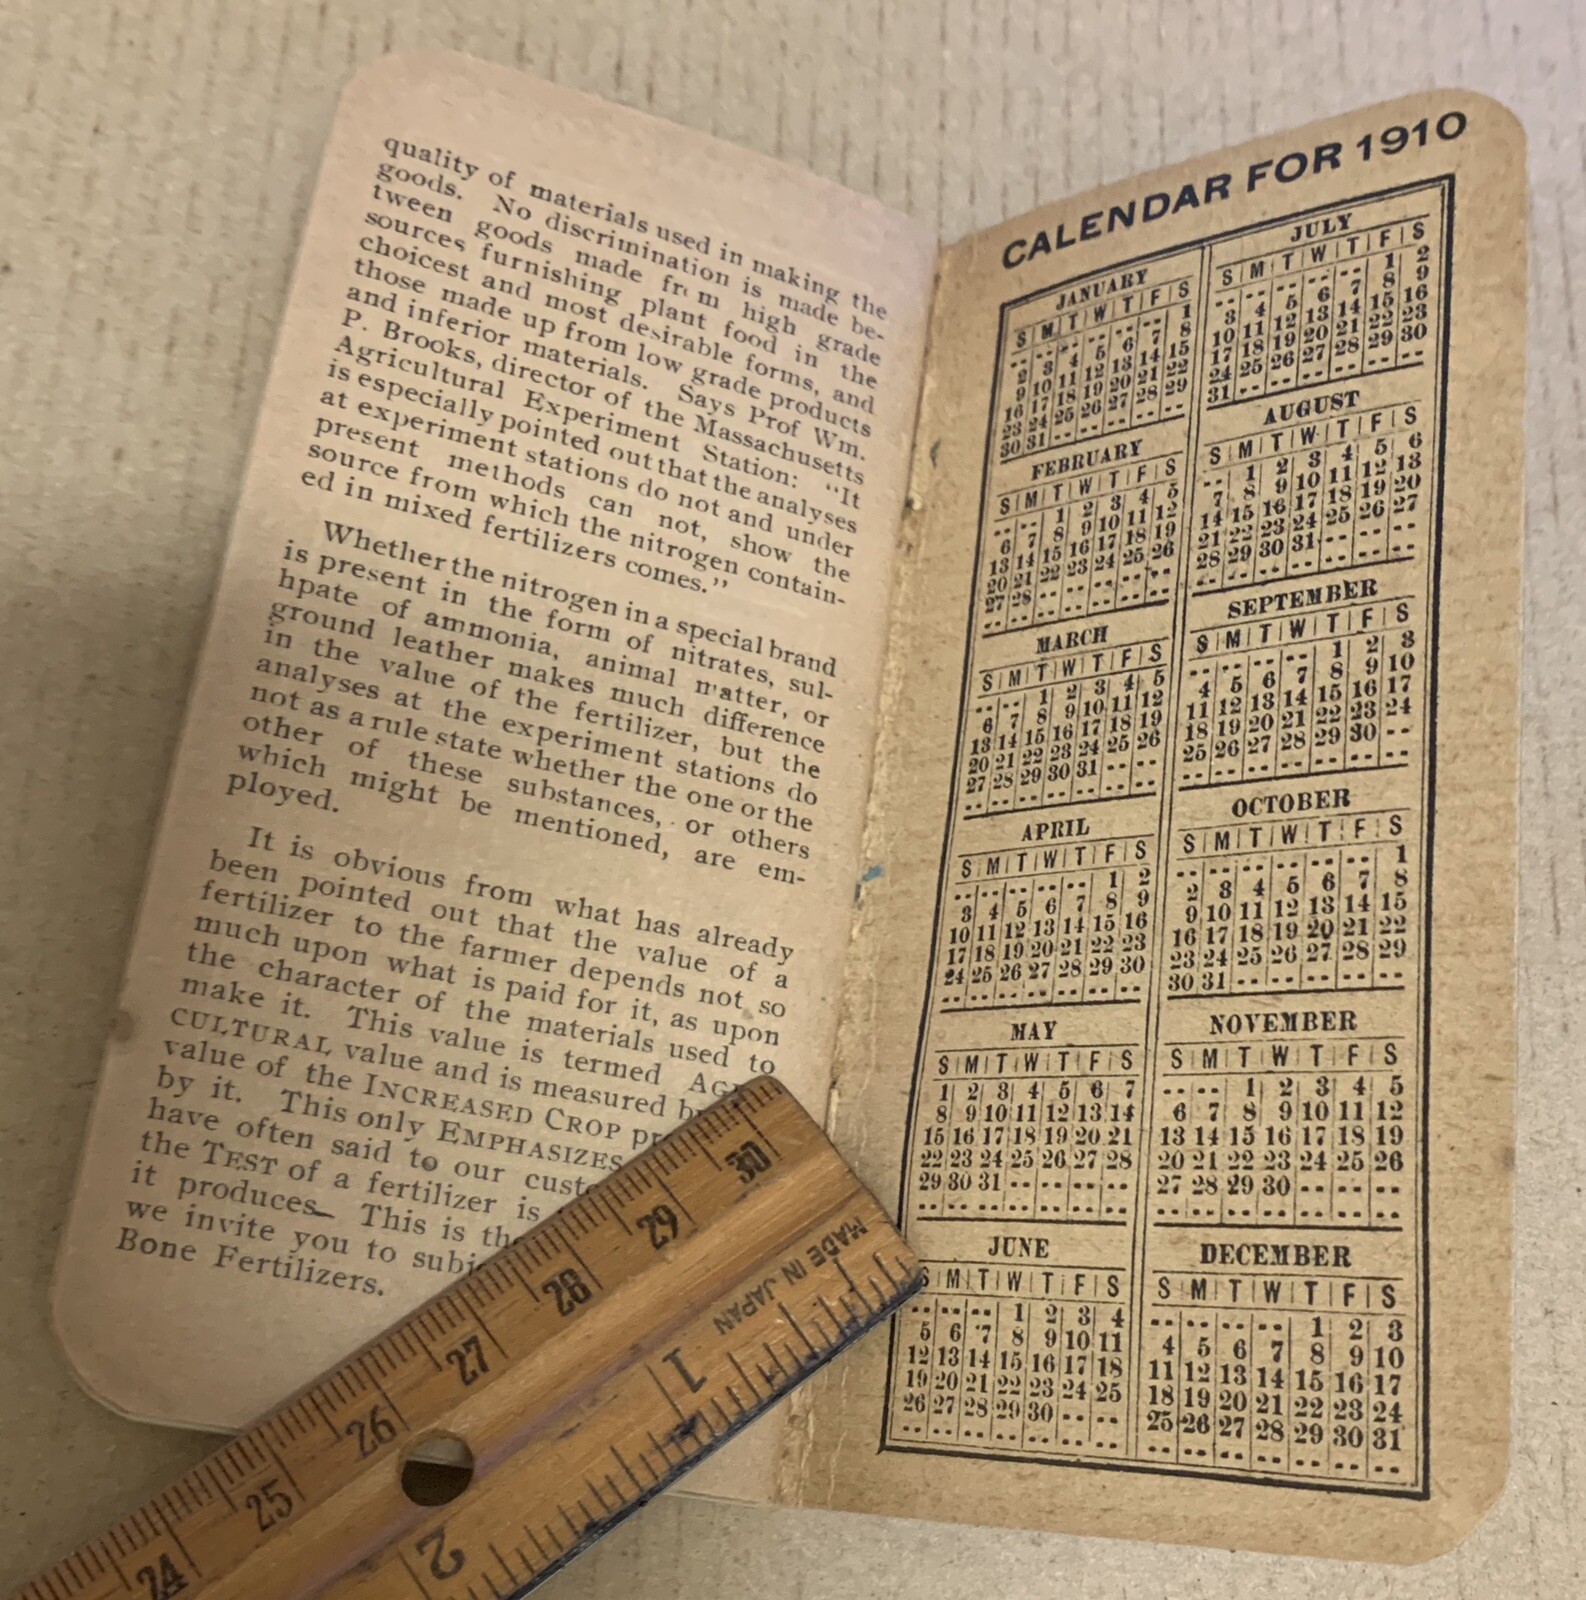 quality of materials used in making the
goods. No discrimination is made be-
tween goods made from high grade
sources furnishing plant food in the
choicest and most desirable forms, and
those made up from low grade products
and inferior materials. Says Prof Wm.
P. Brooks, director of the Massachusetts
Agricultural Experiment Station: "It
is especially pointed out that the analyses
at experiment stations do not and under
present methods can not, show the
source from which the nitrogen contain-
ed in mixed fertilizers comes."
Whether the nitrogen in a special brand
is present in the form of nitrates, sul-
hpate of ammonia, animal matter, or
ground leather makes much difference
in the value of the fertilizer, but the
analyses at the experiment stations do
not as a rule state whether the one or the
other of these substances, or others
which might be mentioned, are em-
ployed.
It is obvious from what has already
been pointed out that the value of a
fertilizer to the farmer depends not so
much upon what is paid for it, as upon
the character of the materials used to
make it. This value is termed
CULTURAL value and is measured
value of the INCREASED CROP
by it. This only EMPHASIZES
have often said to our
the TEST of a fertilizer is
it produces— This is
we invite you to
Bone Fertilizers.
24 25 26 27 28 29 30
MADE IN JAPAN
1 2
CALENDAR FOR 1910
JANUARY
S M T W T F S
-- -- -- -- -- -- 1
2 3 4 5 6 7 8
9 10 11 12 13 14 15
16 17 18 19 20 21 22
23 24 25 26 27 28 29
30 31 -- -- -- -- --
FEBRUARY
S M T W T F S
-- -- 1 2 3 4 5
6 7 8 9 10 11 12
13 14 15 16 17 18 19
20 21 22 23 24 25 26
27 28 -- -- -- -- --
-- -- -- -- -- -- --
MARCH
S M T W T F S
-- -- 1 2 3 4 5
6 7 8 9 10 11 12
13 14 15 16 17 18 19
20 21 22 23 24 25 26
27 28 29 30 31 -- --
-- -- -- -- -- -- --
APRIL
S M T W T F S
-- -- -- -- -- 1 2
3 4 5 6 7 8 9
10 11 12 13 14 15 16
17 18 19 20 21 22 23
24 25 26 27 28 29 30
-- -- -- -- -- -- --
MAY
S M T W T F S
1 2 3 4 5 6 7
8 9 10 11 12 13 14
15 16 17 18 19 20 21
22 23 24 25 26 27 28
29 30 31 -- -- -- --
-- -- -- -- -- -- --
JUNE
S M T W T F S
-- -- -- 1 2 3 4
5 6 7 8 9 10 11
12 13 14 15 16 17 18
19 20 21 22 23 24 25
26 27 28 29 30 -- --
-- -- -- -- -- -- --
JULY
S M T W T F S
-- -- -- -- -- 1 2
3 4 5 6 7 8 9
10 11 12 13 14 15 16
17 18 19 20 21 22 23
24 25 26 27 28 29 30
31 -- -- -- -- -- --
AUGUST
S M T W T F S
-- 1 2 3 4 5 6
7 8 9 10 11 12 13
14 15 16 17 18 19 20
21 22 23 24 25 26 27
28 29 30 31 -- -- --
-- -- -- -- -- -- --
SEPTEMBER
S M T W T F S
-- -- -- -- 1 2 3
4 5 6 7 8 9 10
11 12 13 14 15 16 17
18 19 20 21 22 23 24
25 26 27 28 29 30 --
-- -- -- -- -- -- --
OCTOBER
S M T W T F S
-- -- -- -- -- -- 1
2 3 4 5 6 7 8
9 10 11 12 13 14 15
16 17 18 19 20 21 22
23 24 25 26 27 28 29
30 31 -- -- -- -- --
NOVEMBER
S M T W T F S
-- -- 1 2 3 4 5
6 7 8 9 10 11 12
13 14 15 16 17 18 19
20 21 22 23 24 25 26
27 28 29 30 -- -- --
-- -- -- -- -- -- --
DECEMBER
S M T W T F S
-- -- -- -- 1 2 3
4 5 6 7 8 9 10
11 12 13 14 15 16 17
18 19 20 21 22 23 24
25 26 27 28 29 30 31
-- -- -- -- -- -- --